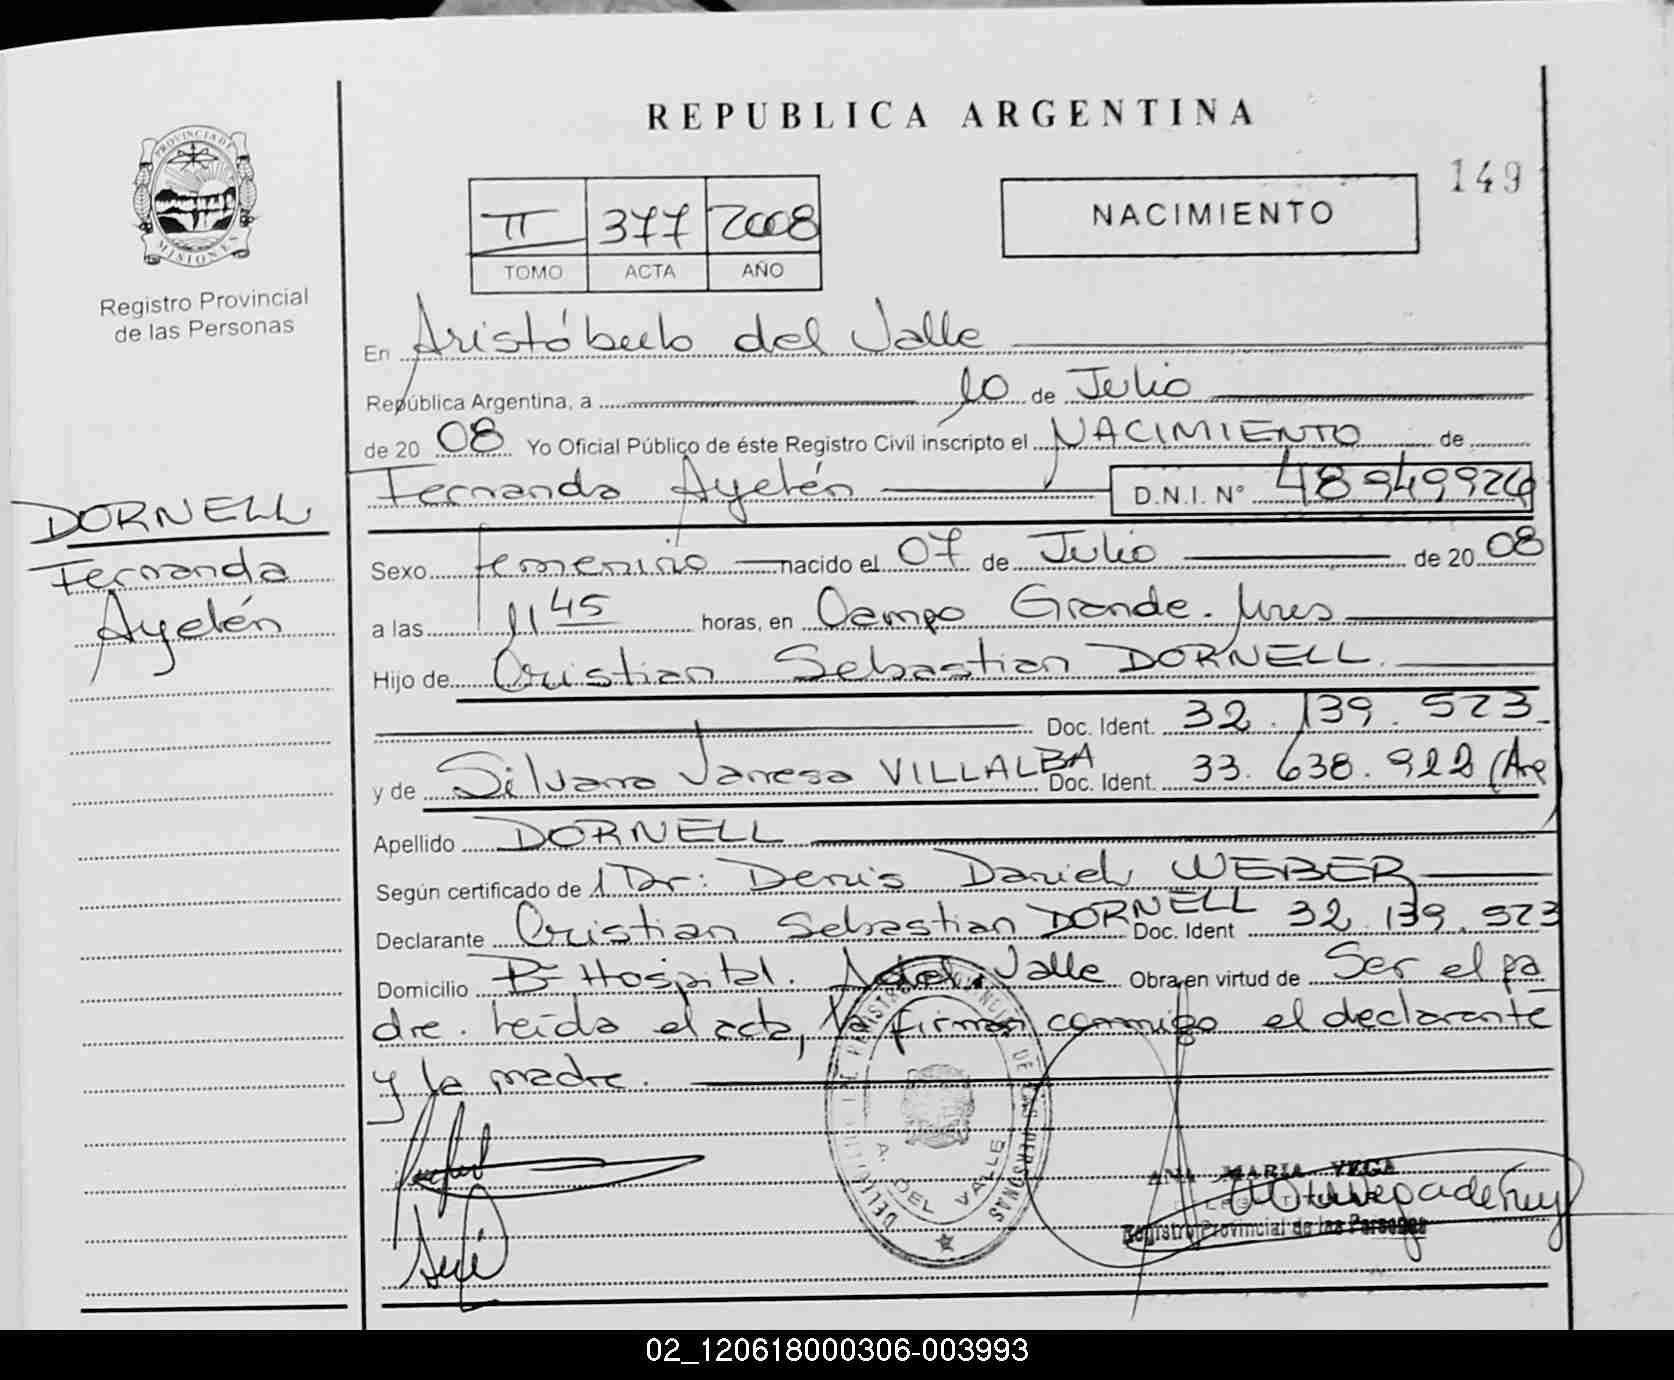 REPUBLICA ARGENTINA
149
PROVINCIA DE
MISIONES
Registro Provincial
de las Personas
II 377 2008
TOMO ACTA AÑO
NACIMIENTO
En Aristóbulo del Valle
República Argentina, a 10 de Julio
de 20 08 Yo Oficial Público de éste Registro Civil inscripto el NACIMIENTO de
Fernanda Ayelén D.N.I. N° 48949926
DORNELL
Fernanda
Ayelén
Sexo femenino nacido el 07 de Julio de 20 08
a las 11 45 horas, en Campo Grande. Mnes
Hijo de Cristian Sebastian DORNELL.
Doc. Ident. 32.139.573
y de Silvana Vanesa VILLALBA Doc. Ident. 33.638.922 (Arg
Apellido DORNELL
Según certificado de Dr: Denis Daniel WEBER
Declarante Cristian Sebastian DORNELL Doc. Ident 32.139.573
Domicilio B° Hospital. A. del Valle Obra en virtud de Ser el pa
dre. Leída el acta, firman conmigo el declarante
y la madre.
A. DEL VALLE
ANA MARIA VEGA
Registro Provincial de las Personas
02_120618000306-003993